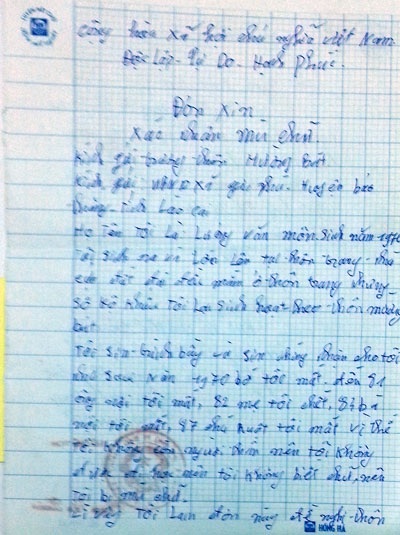 Cộng hòa xã hội chủ nghĩa việt Nam
Độc Lập - Tự Do - Hạnh Phúc.
Đơn xin
xác nhận mù chữ.
Kính gửi trưởng thôn Mường Bát
Kính gửi UBND xã gia phú. Huyện bảo
thắng. tỉnh Lào cai
Họ tên tôi là Lương văn môn. Sinh năm 1970
Tôi sinh ra và lớn lên tại thôn trang
đất đai đều nằm ở thôn trang nhưng
sổ hộ khẩu tôi lại sinh hoạt theo thôn mường
bát
Tôi xin trình bày và xin chứng nhận cho tôi
như sau Năm 1970 bố tôi mất. đến 81
ông nội tôi mất, 82 mẹ tôi chết, 84 bà
nội tôi mất, 87 chú ruột tôi mất vì thế
tôi không còn người thân nên tôi không
được đi học nên tôi không biết chữ, nên
tôi bị mù chữ.
Vì vậy Tôi làm đơn này đề nghị thôn
HONG HA